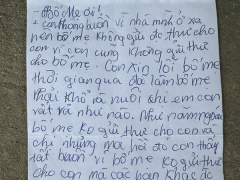 - Bố Mẹ ơi!
+ con không buồn vì nhà mình ở xa
nên bố mẹ không gửi đc thư cho
con vì con cũng không gửi thư
cho bố mẹ. Con xin lỗi bố mẹ
thời gian qua đã làm bố mẹ
phải khổ rồi nuôi chị em con
vất vả như nào. Như năm ngoái
bố mẹ ko gửi thư cho con và
chỉ những mà hồi đó con thấy
rất buồn vì bố mẹ ko gửi thư
cho con mà các bạn khác đc